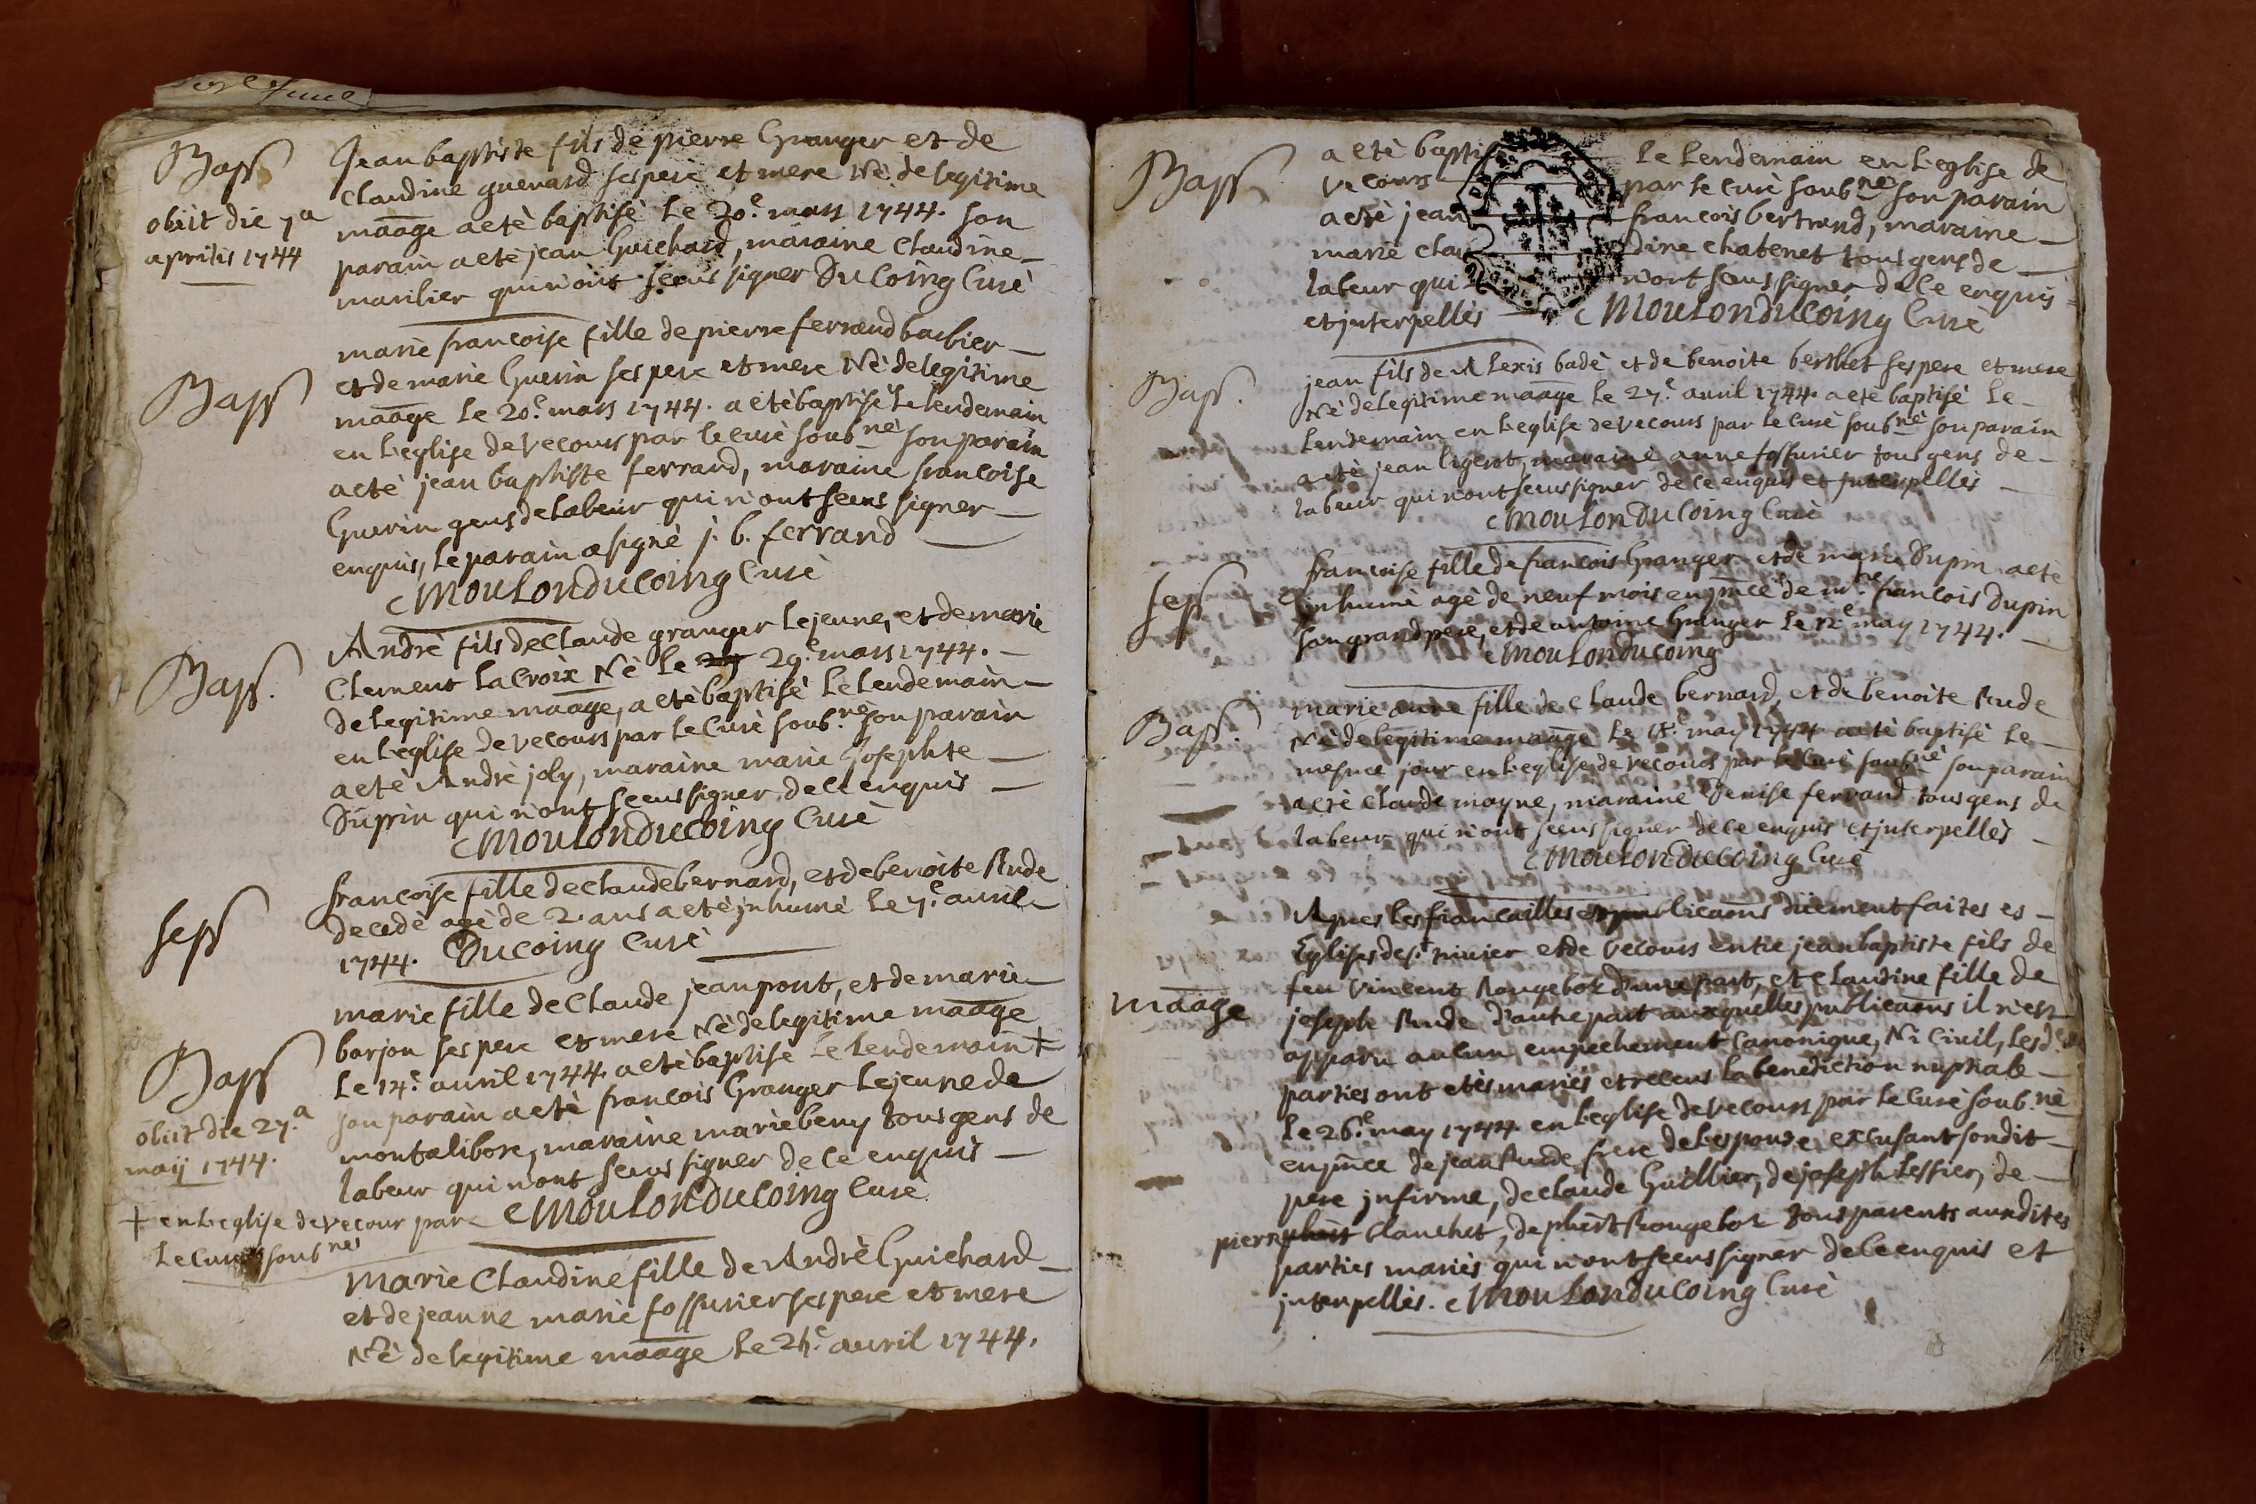 Bapt
obiit die 7a
aprilis 1744
Jean baptiste fils de pierre Granger et de
Claudine guenard ses pere et mere Nè de legitime
māage a etè baptisè le 20.e mars 1744. son
parain a etè jean Guichard, maraine Claudine
marilier qui n'ont sceus signer DuCoing Curè
Bapt
marie francoise fille de pierre ferrand barbier
et de marie Guerin ses pere et mere Nè de legitime
māage le 20.e mars 1744. a etè baptisè le lendemain
en l'eglise de vecours par le curè soubné son parain
a etè jean baptiste ferrand, maraine francoise
Guerin gens de labeur qui n'ont sceus signer
enquis, le parain a signè j. b. ferrand
Moulon DuCoing Curè
Bapt.
Andrè fils de Claude granger le jeune, et de marie
Clement la Croix Nè le 29 29.e mars 1744.
de legitime māage, a etè baptisè le lendemain
en l'eglise de vecours par le Curè soub.né son parain
a etè Andrè joly, maraine marie Josephte
Dupin qui n'ont sceus signer de ce enquis
Moulon DuCoing Curè
sep
francoise fille de Claude bernard, et de benoite Rude
decedè agè de 2 ans a etè inhumè le 7.e avril
1744. DuCoing Curè
Bapt
obiit die 27.a
maij 1744.
marie fille de Claude jeanpont, et de marie
borjon ses pere et mere Nè de legitime māage
le 14.e avril 1744. a etè baptisè le lendemain +
son parain a etè francois Granger le jeune de
montalibore, maraine marie beny tous gens de
labeur qui n'ont sceus signer de ce enquis
+ en l'eglise de vecour par
le Curè soubné
Moulon DuCoing Curè
Marie Claudine fille de Andrè Guichard
et de jeanne marie fossurier ses pere et mere
Nè de legitime māage le 25.e avril 1744.
Bapt
a etè bapti le lendemain en l'eglise de
vecours par le curè soubné son parain
a etè jean francois bertrand, maraine
marie clau dine chatenet tous gens de
labeur qui n'ont sceus signer de ce enquis
et interpellès Moulon DuCoing Curè
Bapt.
jean fils de Alexis badè et de benoite berthet ses pere et mere
Nè de legitime māage le 27.e avril 1744. a etè baptisè le
lendemain en l'eglise de vecours par le Curè soubnè son parain
a etè jean ligerot, maraine anne fossurier tous gens de
labeur qui n'ont sceus signer de ce enquis et interpellès
Moulon DuCoing Curè
sep
francoise fille de francois Granger et de marie Dupin a etè
inhumè agè de neuf mois en pñce de m.re francois Dupin
son grand pere, et de antoine Granger le 12.e may 1744.
Moulon DuCoing
Bapt.
marie anne fille de Claude bernard, et de benoite Rude
Nè de legitime māage le 18.e may 1744 a etè baptisè le
mesme jour en l'eglise de vecours par le Curè soubnè son parain
a etè Claude mayne, maraine Denise ferrand tous gens de
labeur qui n'ont sceus signer de ce enquis et interpellès
Moulon DuCoing Curè
māage
Apres les fiancailles et publicaõns düement faites es
Eglises de st. nivier et de vecours entre jean baptiste fils de
feu Vincent Rougebot d'une part, et Claudine fille de
joseph Rude d'autre part auxquelles publicaõns il n'est
apparu aucun empechement Canonique, Ni Civil, les d.es
parties ont etès mariès et receus la benediction nuptiale
le 26.e may 1744 en l'eglise de vecours par le Curè soub.nè
en pñce de jean Rude frere de l'epouse, excusant son dit
pere infirme, de claude Guillier, de joseph tessier, de
pierre phbert blanchet, de phbert Rougebot tous parents auxdites
parties mariès qui n'ont sceus signer de ce enquis et
interpellès. Moulon DuCoing Curè